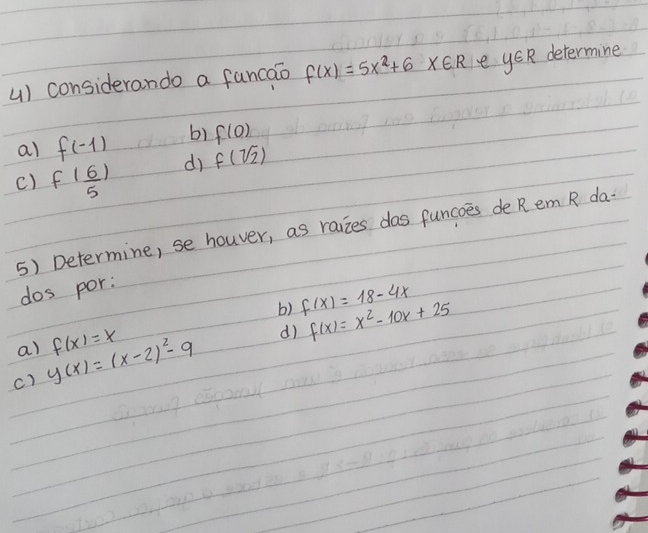 4) Considerando a função f(x) = 5x²+6 X∈R e y∈R determine
a) f(-1) b) f(0)
c) f(6/5) d) f(√2)
5) Determine, se houver, as raízes das funcoẽs de R em R da-
dos por:
a) f(x) = x b) f(x) = 18 - 4x
c) y(x) = (x-2)² - 9 d) f(x) = x² - 10x + 25